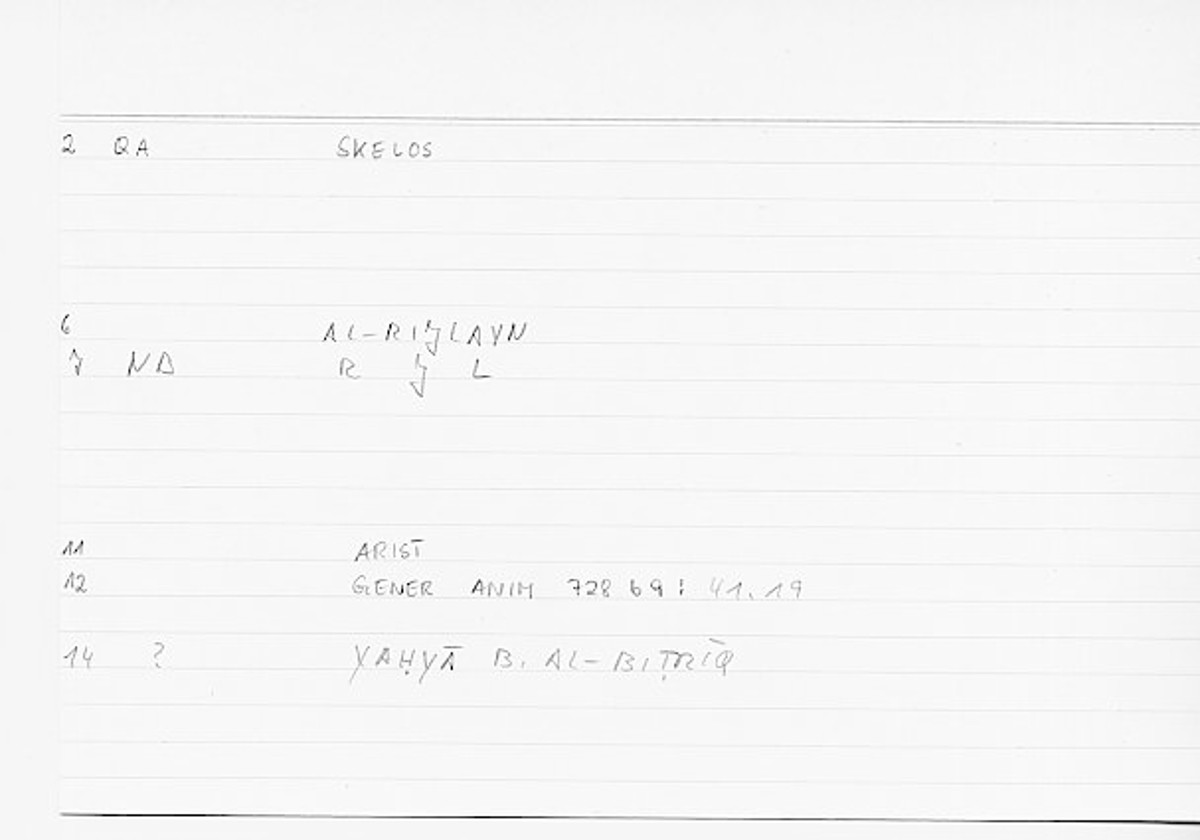 2 QA SKELOS
6 AL-RIǦLAYN
7 ND R Ǧ L
11 ARIST
12 GENER ANIM 728 b9 : 41.19
14 ? YAḤYĀ B. AL-BIṬRĪQ